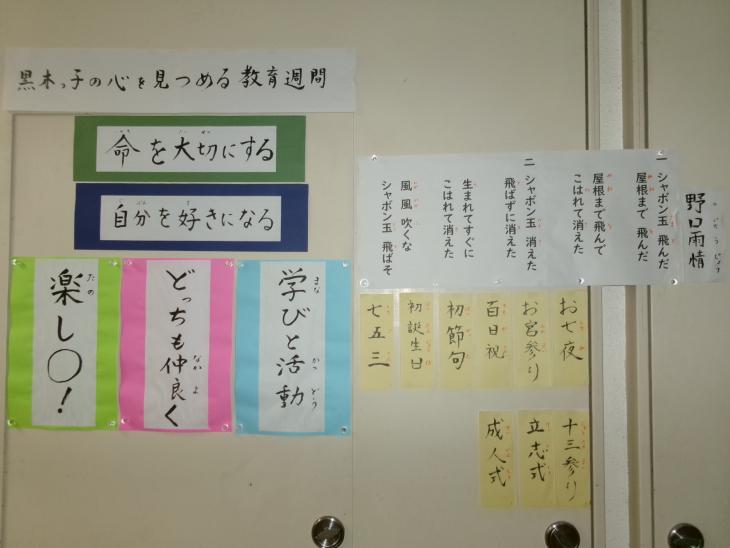 黒木っ子の心を見つめる教育週間
命を大切にする
自分を好きになる
学びと活動
どっちも仲良く
楽し〇!
野口雨情
一 シャボン玉 飛んだ
屋根まで 飛んだ
屋根まで飛んで
こはれて消えた
二 シャボン玉 消えた
飛ばずに消えた
生まれてすぐに
こはれて消えた
風 風 吹くな
シャボン玉 飛ばそ
お七夜
お宮参り
百日祝
初節句
初誕生日
七五三
十三参り
立志式
成人式